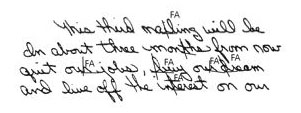 This third mailing will be
In about three months from now
quit our jobs, buy our dream
and live off the interest on our